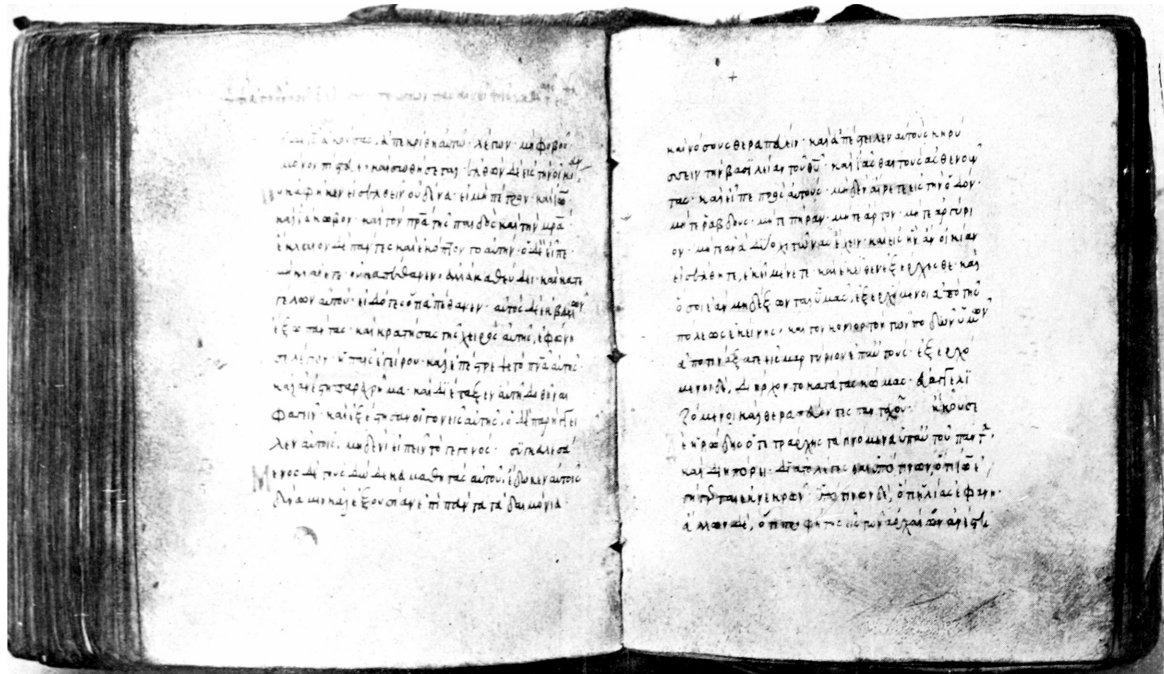 ἀκούσας, ἀπεκρίθη αὐτῶ· λέγων· μὴ φοβοῦ·
μόνον πίστευε· καὶ σωθήσεται· ἐλθὼν δὲ εἰς τὴν οἰκί
οὐκ ἀφῆκεν εἰσελθεῖν οὐδένα· εἰ μὴ πέτρον· καὶ ἰω̅
καὶ ἰάκωβον· καὶ τὸν πρ̅α τῆς παιδὸς καὶ τὴν μρ̅α·
ἔκλαιον δὲ πάντες καὶ ἐκόπτοντο αὐτήν· ὁ δὲ εἶπε·
μὴ κλαίετε· οὐκ ἀπέθανεν· ἀλλὰ καθεύδει· καὶ κατε
γέλων αὐτοῦ· εἰδότες ὅτι ἀπέθανεν· αὐτὸς δὲ ἐκβαλὼν
ἔξω πάντας· καὶ κρατήσας τῆς χειρὸς αὐτῆς, ἐφώνη
σε λέγων· ἡ παῖς ἐγείρου· καὶ ἐπέστρεψε τὸ πν̅α αὐτῆς·
καὶ ἀνέστη παραχρῆμα· καὶ διέταξεν αὐτῆ δοθῆναι
φαγεῖν· καὶ ἐξέστησαν οἱ γονεῖς αὐτῆς, ὁ δὲ παρήγγει
λεν αὐτοῖς, μηδενὶ εἰπεῖν τὸ γεγονός· συγκαλεσά
Μενος δὲ τοὺς δώδεκα μαθητὰς αὐτοῦ, ἔδωκεν αὐτοῖς
δύναμιν καὶ ἐξουσίαν ἐπὶ πάντα τὰ δαιμόνια·
καὶ νόσους θεραπεύειν· καὶ ἀπέστειλεν αὐτοὺς κηρύ
σσειν τὴν βασιλείαν τοῦ θυ̅· καὶ ἰᾶσθαι τοὺς ἀσθενοῦν
τας· καὶ εἶπε πρὸς αὐτούς· μηδὲν αἴρετε εἰς τὴν ὁδόν·
μήτε ῥάβδους· μήτε πήραν· μήτε ἄρτον· μήτε ἀργύρι
ον· μήτε ἀνὰ δύο χιτῶνας ἔχειν· καὶ εἰς ἣν ἂν οἰκίαν
εἰσέλθητε, ἐκεῖ μένετε· καὶ ἐκεῖθεν ἐξέρχεσθε· καὶ
ὅσοι ἐὰν μὴ δέξωνται ὑμᾶς, ἐξερχόμενοι ἀπὸ τῆς
πόλεως ἐκείνης, καὶ τὸν κονιορτὸν τῶν ποδῶν ὑμῶν
ἀποτινάξατε εἰς μαρτύριον ἐπ' αὐτούς· ἐξερχό
μενοι δὲ, διήρχοντο κατὰ τὰς κώμας· εὐαγγελι
ζόμενοι καὶ θεραπεύοντες πανταχοῦ· ἤκουσε
δὲ ἡρώδης ὁ τετραρχης τὰ γινόμενα ὑπ' αὐτοῦ πάντα,
καὶ διηπόρει· διὰ τὸ λέγεσθαι ὑπό τινων, ὅτι ἰω̅
ἐγήγερται ἐκ νεκρῶν· ὑπό τινων δὲ, ὅτι ἠλίας ἐφάνη·
ἄλλων δὲ, ὅτι προφήτης εἷς τῶν ἀρχαίων ἀνέστη·